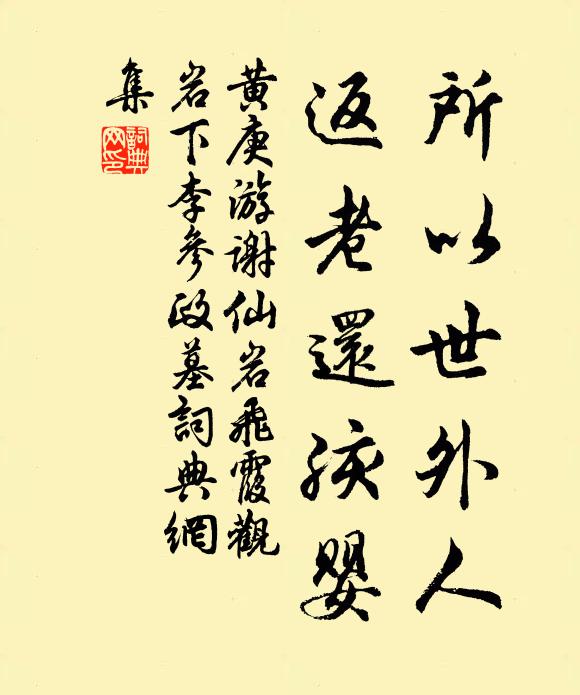 所以世外人
返老還孩嬰
黃庚游谢仙岩飛霞觀
岩下李参政墓詞典網
集
詞典
网印